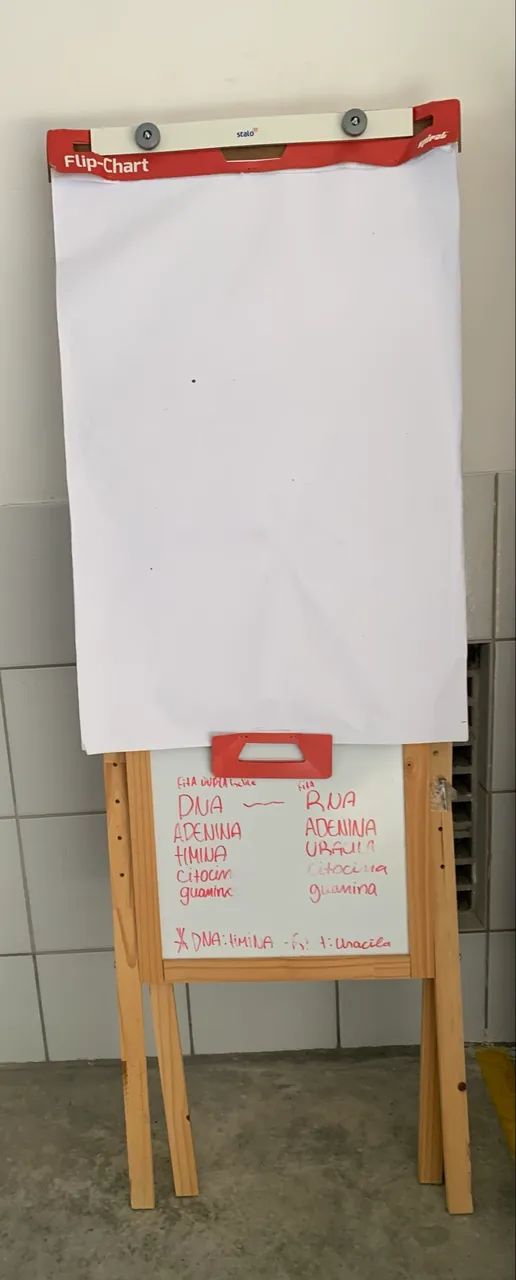 stalo
Flip-Chart
spiral
fita DUPLA hélice fita
DNA — RNA
ADENINA ADENINA
tIMINA URACILA
citocin citocina
guanina guanina
* DNA: tIMINA - : Uracila